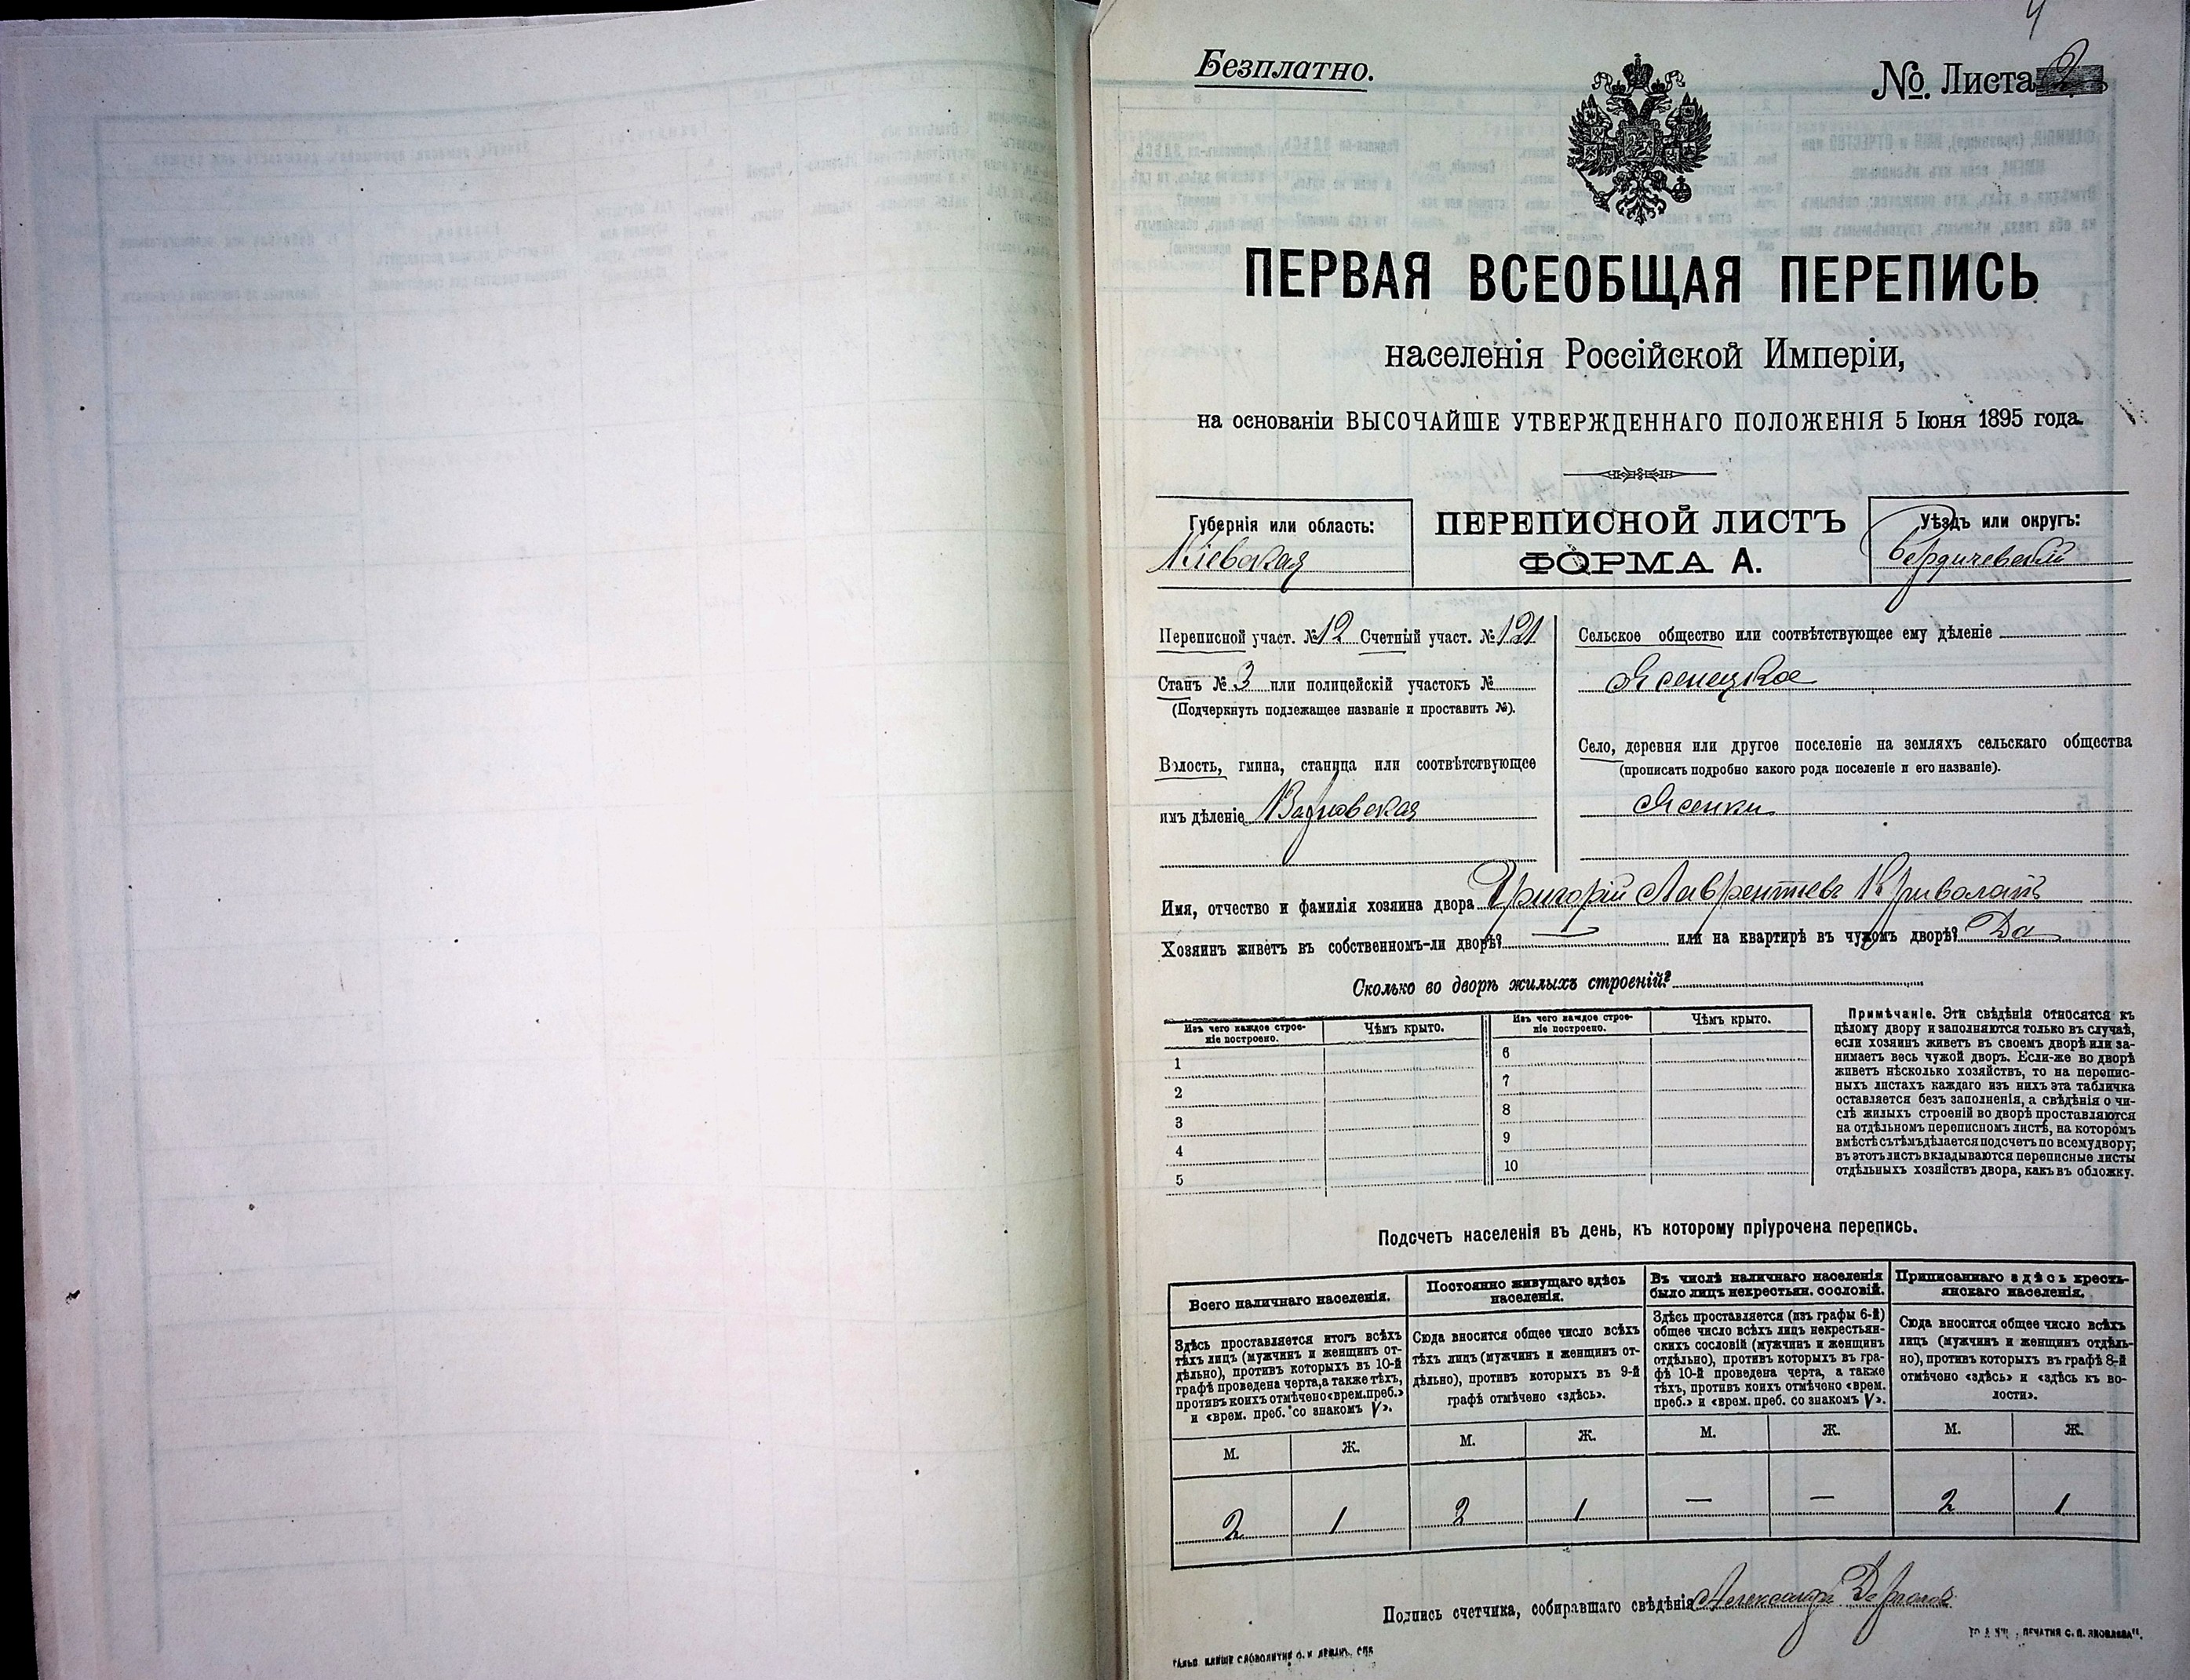 4
Безплатно.
№. Листа 2
ПЕРВАЯ ВСЕОБЩАЯ ПЕРЕПИСЬ
населенія Россійской Имперіи,
на основаніи ВЫСОЧАЙШЕ УТВЕРЖДЕННАГО ПОЛОЖЕНІЯ 5 Іюня 1895 года.
Губернія или область:
Кіевская
ПЕРЕПИСНОЙ ЛИСТЪ
ФОРМА А.
Уѣздъ или округъ:
Бердичевскій
Переписной участ. № 12 Счетный участ. № 121
Станъ № 3 или полицейскій участокъ №
(Подчеркнуть подлежащее названіе и проставить №).
Волость, гмина, станица или соотвѣтствующее
имъ дѣленіе
Сельское общество или соотвѣтствующее ему дѣленіе
Ясенецкое
Село, деревня или другое поселеніе на земляхъ сельскаго общества
(прописать подробно какого рода поселеніе и его названіе).
Ясенки
Имя, отчество и фамилія хозяина двора Григорій Лаврентіевъ Криволапъ
Хозяинъ живетъ въ собственномъ-ли дворѣ? — или на квартирѣ въ чужомъ дворѣ? Да
Сколько во дворѣ жилыхъ строеній?
Изъ чего каждое строе-
ніе построено.
Чѣмъ крыто.
1
2
3
4
5
Изъ чего каждое строе-
ніе построено.
Чѣмъ крыто.
6
7
8
9
10
Примѣчаніе. Эти свѣдѣнія относятся къ
цѣлому двору и заполняются только въ случаѣ,
если хозяинъ живетъ въ своемъ дворѣ или за-
нимаетъ весь чужой дворъ. Если-же во дворѣ
живетъ нѣсколько хозяйствъ, то на перепис-
ныхъ листахъ каждаго изъ нихъ эта табличка
оставляется безъ заполненія, а свѣдѣнія о чи-
слѣ жилыхъ строеній во дворѣ проставляются
на отдѣльномъ переписномъ листѣ, на которомъ
вмѣстѣ съ тѣмъ дѣлается подсчетъ по всему двору;
въ этотъ листъ вкладываются переписные листы
отдѣльныхъ хозяйствъ двора, какъ въ обложку.
Подсчетъ населенія въ день, къ которому пріурочена перепись.
Всего наличнаго населенія.
Здѣсь проставляется итогъ всѣхъ
тѣхъ лицъ (мужчинъ и женщинъ от-
дѣльно), противъ которыхъ въ 10-й
графѣ проведена черта, а также тѣхъ,
противъ коихъ отмѣчено «врем. преб.»
и «врем. преб. со знакомъ V».
М. Ж.
2 1
Постоянно живущаго здѣсь
населенія.
Сюда вносится общее число всѣхъ
тѣхъ лицъ (мужчинъ и женщинъ от-
дѣльно), противъ которыхъ въ 9-й
графѣ отмѣчено «здѣсь».
М. Ж.
2 1
Въ числѣ наличнаго населенія
было лицъ некрестьян. сословій.
Здѣсь проставляется (изъ графы 6-й)
общее число всѣхъ лицъ некрестьян-
скихъ сословій (мужчинъ и женщинъ
отдѣльно), противъ которыхъ въ гра-
фѣ 10-й проведена черта, а также
тѣхъ, противъ коихъ отмѣчено «врем.
преб.» и «врем. преб. со знакомъ V».
М. Ж.
— —
Приписаннаго здѣсь кресть-
янскаго населенія.
Сюда вносится общее число всѣхъ
лицъ (мужчинъ и женщинъ отдѣль-
но), противъ которыхъ въ графѣ 8-й
отмѣчено «здѣсь» и «здѣсь къ во-
лости».
М. Ж.
2 1
Подпись счетчика, собиравшаго свѣдѣнія Александръ